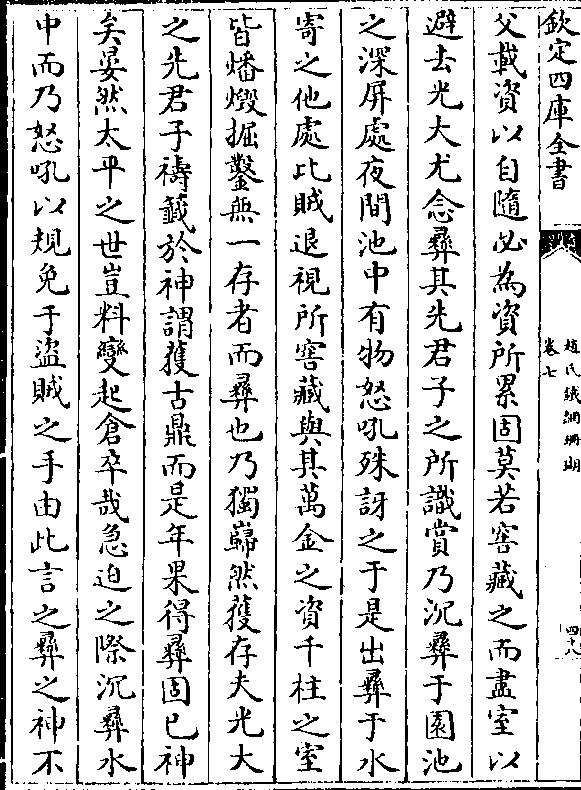 欽定四庫全書
趙氏鐵網珊瑚
卷七
四十八
父載資以自隨必為資所累固莫若窖藏之而盡室以
避去光大尤念彞其先君子之所識賞乃沉彞于園池
之深屏處夜間池中有物怒吼殊訝之于是出彞于水
寄之他處比賊退視所窖藏與其萬金之資千柱之室
皆燔燬掘鑿無一存者而彞也乃獨巋然獲存夫光大
之先君子禱籖於神謂獲古鼎而是年果得彞固已神
矣晏然太平之世豈料變起倉卒哉急迫之際沉彞水
中而乃怒吼以規免于盜賊之手由此言之彞之神不